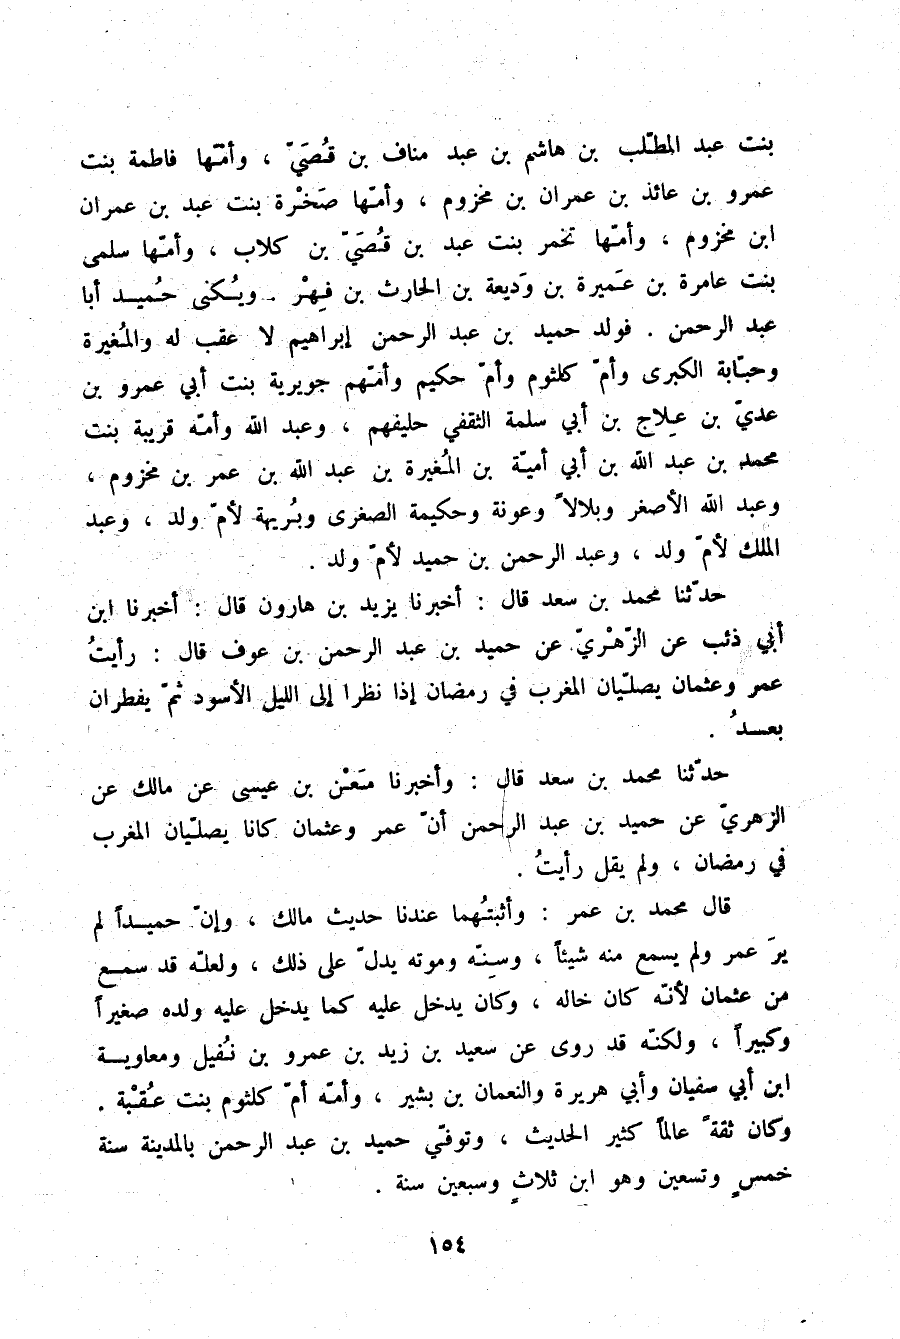 بنت عبد المطّلب بن هاشم بن عبد مناف بن قُصَيّ ، وأمّها فاطمة بنت
عمرو بن عائذ بن عمران بن مخزوم ، وأمّها صَخْرة بنت عبد بن عمران
ابن مخزوم ، وأمّها تخمر بنت عبد بن قُصَيّ بن كلاب ، وأمّها سلمى
بنت عامرة بن عَميرة بن وَديعة بن الحارث بن فِهْر . ويُكنى حُميد أبا
عبد الرحمن . فولد حميد بن عبد الرحمن إبراهيم لا عقب له والمُغيرة
وحبّابة الكبرى وأمّ كلثوم وأمّ حكيم وأمّهم جويرية بنت أبي عمرو بن
عديّ بن عِلاج بن أبي سلمة الثقفي حليفهم ، وعبد الله وأمّه قريبة بنت
محمد بن عبد الله بن أبي أميّة بن المُغيرة بن عبد الله بن عمر بن مخزوم ،
وعبد الله الأصغر وبلالاً وعونة وحكيمة الصغرى وبُريهة لأمّ ولد ، وعبد
الملك لأمّ ولد ، وعبد الرحمن بن حميد لأمّ ولد .
حدّثنا محمد بن سعد قال : أخبرنا يزيد بن هارون قال : أخبرنا ابن
أبي ذئب عن الزّهْريّ عن حميد بن عبد الرحمن بن عوف قال : رأيتُ
عمر وعثمان يصلّيان المغرب في رمضان إذا نظرا إلى الليل الأسود ثمّ يفطران
بعـدُ .
حدّثنا محمد بن سعد قال : وأخبرنا مَعْن بن عيسى عن مالك عن
الزهريّ عن حميد بن عبد الرحمن أنّ عمر وعثمان كانا يصلّيان المغرب
في رمضان ، ولم يقل رأيتُ .
قال محمد بن عمر : وأثبتُهما عندنا حديث مالك ، وإنّ حميداً لم
يرَ عمر ولم يسمع منه شيئاً ، وسِنّه وموته يدلّ على ذلك ، ولعلّه قد سمع
من عثمان لأنّه كان خاله ، وكان يدخل عليه كما يدخل عليه ولده صغيراً
وكبيراً ، ولكنّه قد روى عن سعيد بن زيد بن عمرو بن نُفيل ومعاوية
ابن أبي سفيان وأبي هريرة والنعمان بن بشير ، وأمّه أمّ كلثوم بنت عُقْبة .
وكان ثقةً عالماً كثير الحديث ، وتوفّي حميد بن عبد الرحمن بالمدينة سنة
خمسٍ وتسعين وهو ابن ثلاثٍ وسبعين سنة .
١٥٤